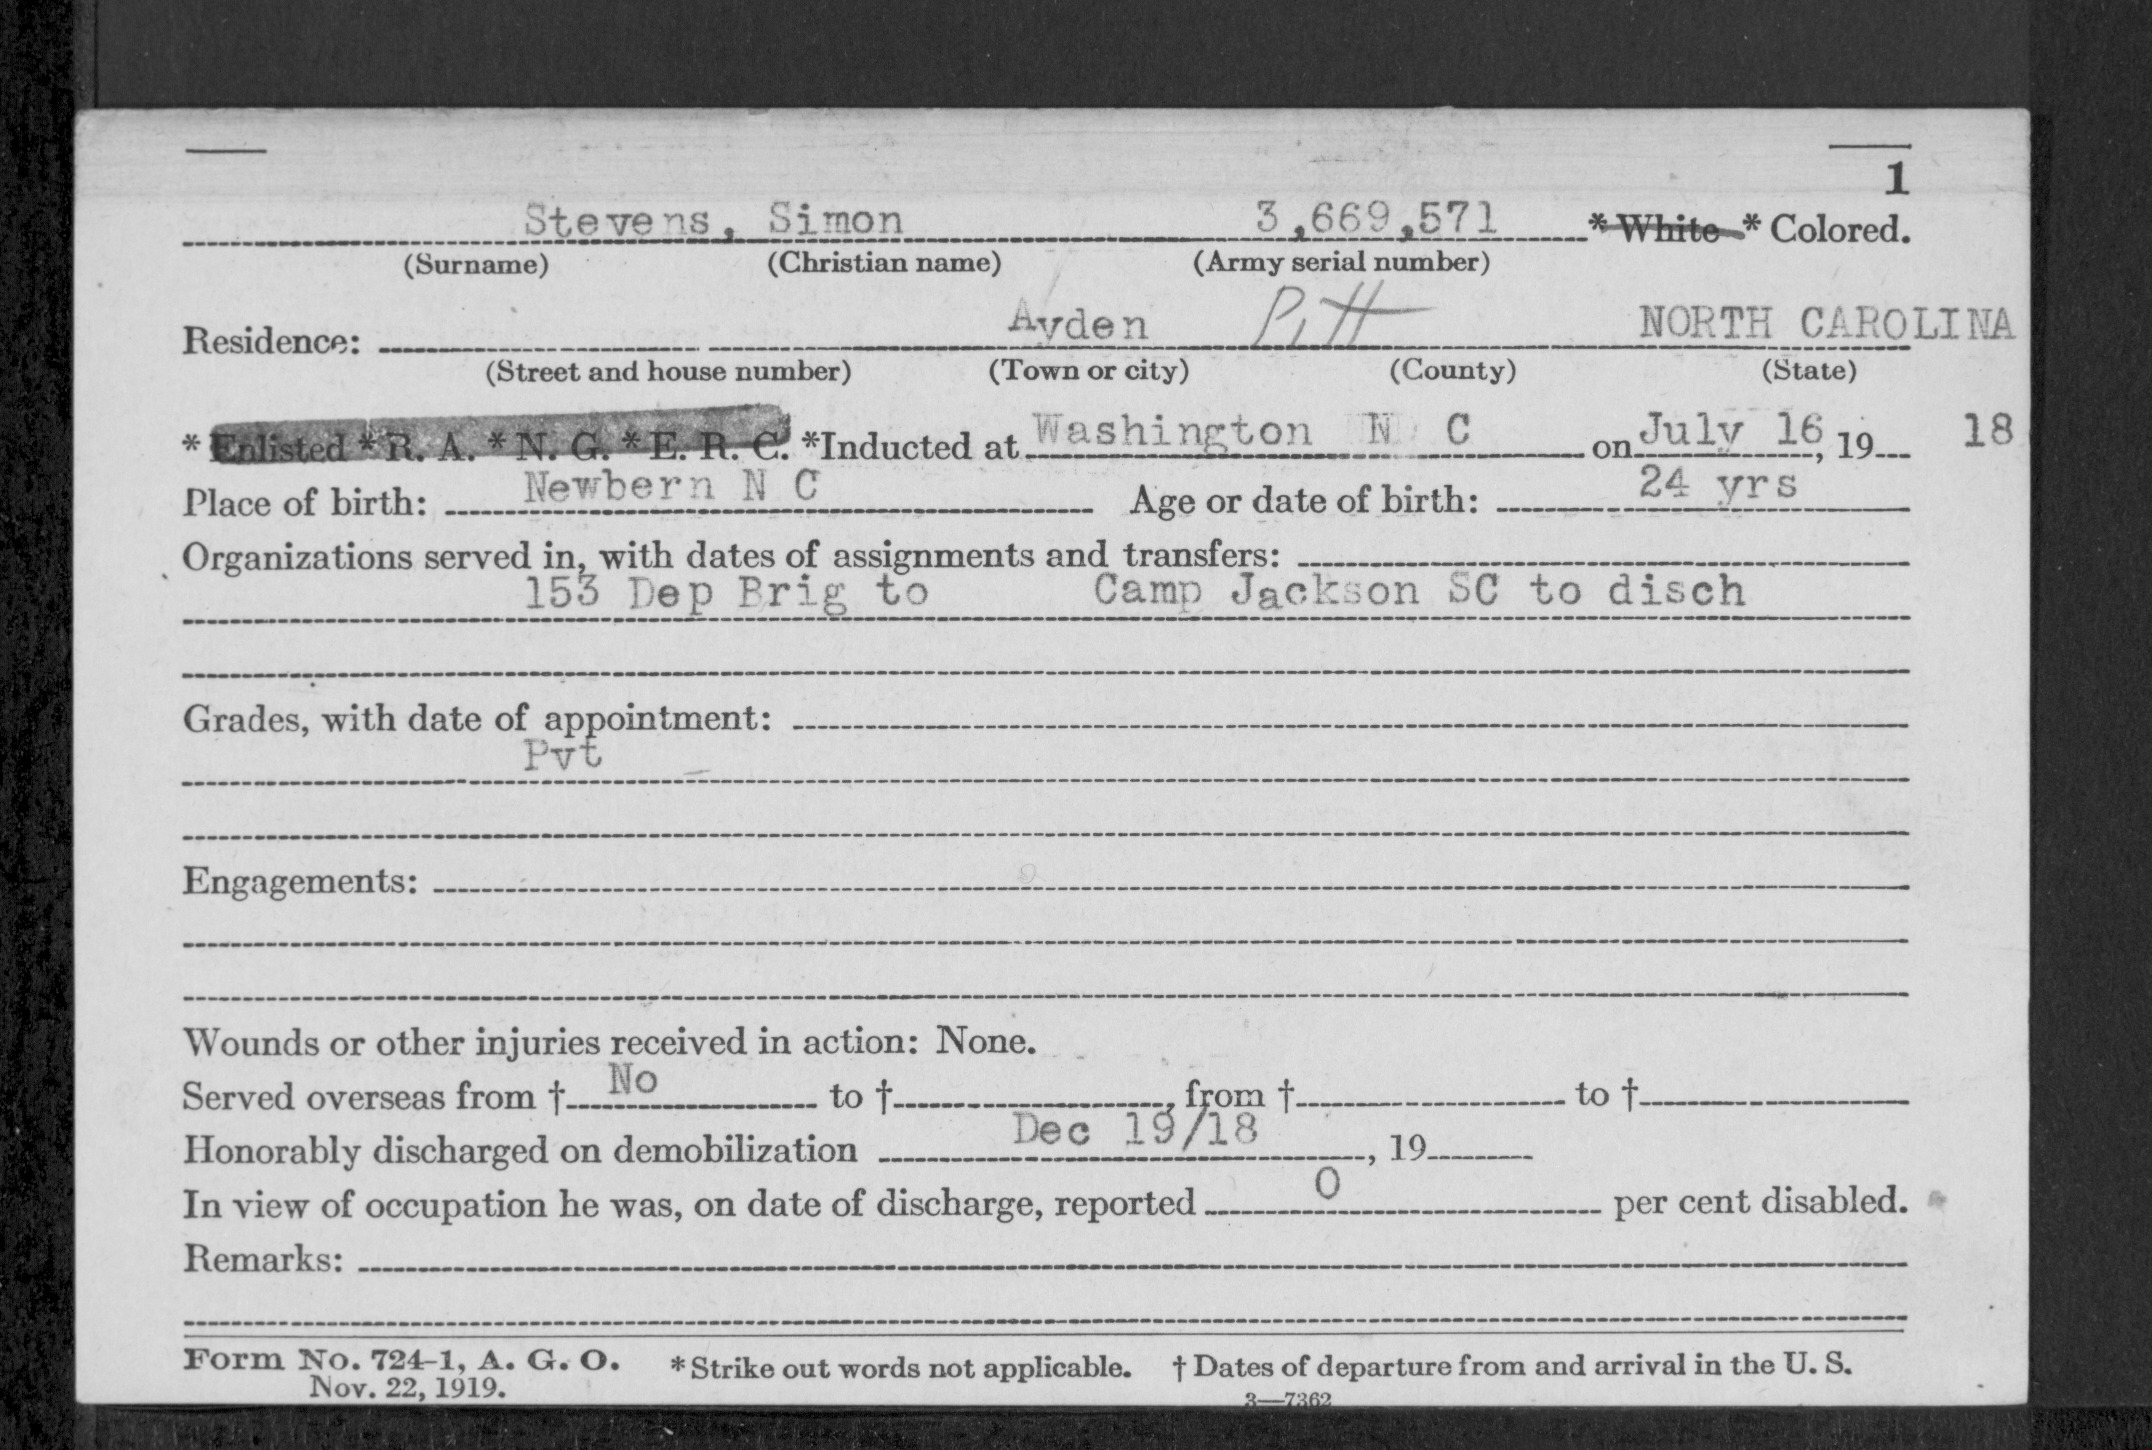 1
Stevens, Simon 3,669,571 * White * Colored.
(Surname) (Christian name) (Army serial number)
Residence: Ayden Pitt NORTH CAROLINA
(Street and house number) (Town or city) (County) (State)
* Enlisted * R. A. * N. G. * E. R. C. *Inducted at Washington N C on July 16, 19 18
Place of birth: Newbern N C Age or date of birth: 24 yrs
Organizations served in, with dates of assignments and transfers:
153 Dep Brig to Camp Jackson SC to disch
Grades, with date of appointment:
Pvt
Engagements:
Wounds or other injuries received in action: None.
Served overseas from † No to †, from † to †
Honorably discharged on demobilization Dec 19/18, 19
In view of occupation he was, on date of discharge, reported 0 per cent disabled.
Remarks:
Form No. 724-1, A. G. O. * Strike out words not applicable. † Dates of departure from and arrival in the U. S.
Nov. 22, 1919.
3—7362